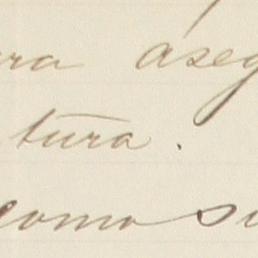 ra aseg
tura.
como su